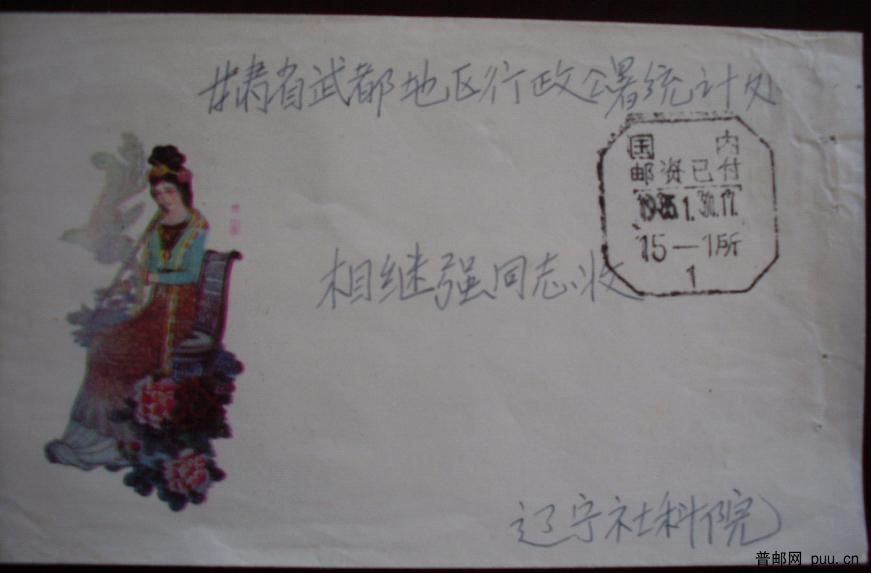 甘肃省武都地区行政公署统计处
国 内
邮资已付
1985.1.30.17
15—1所
1
相继强同志收
辽宁社科院
普邮网 puu.cn